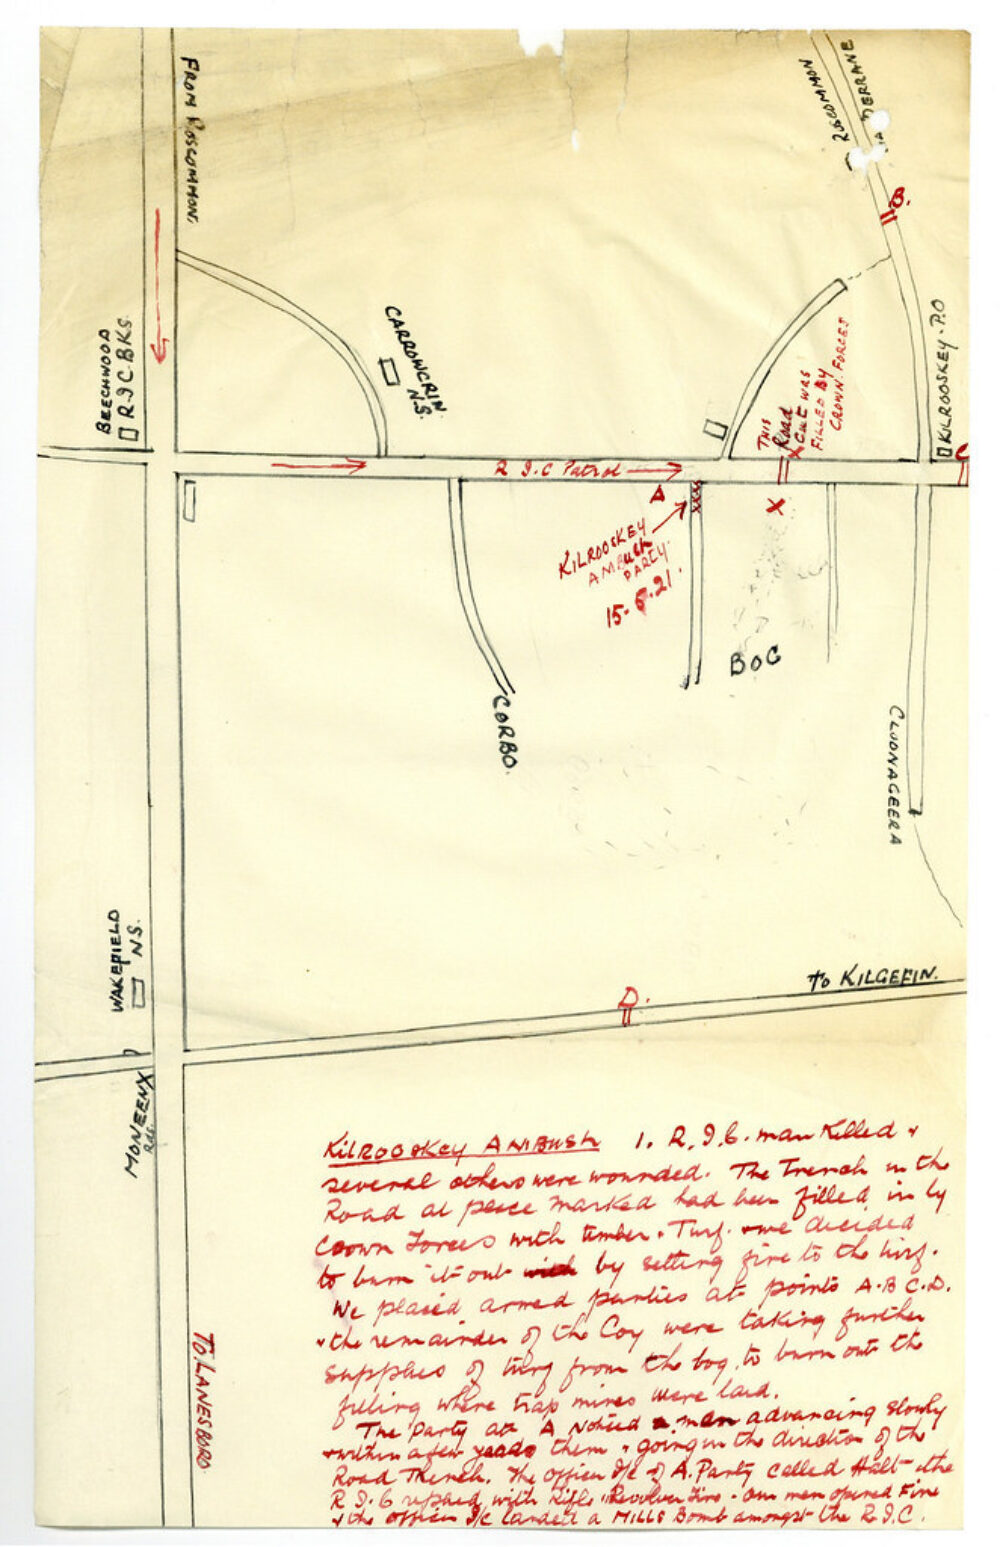 FROM ROSCOMMON.
ROSCOMMON
DERRANE
B.
BEECHWOOD
R.I.C. BKS.
CARROWCRIN
N.S.
THIS
Road
CUT WAS
FILLED BY
CROWN FORCES
KILROOSKEY - P.O
C
R I.C Patrol
A
X
X
KILROOSKEY
AMBUSH
PARTY.
15-6-21.
BOG
CORBO.
CLOONAGEERA
WAKEFIELD
N.S.
D.
To KILGEFIN.
MONEENX
Rds.
To LANESBORO
KILROOSKEY AMBUSH 1. R.I.C. man Killed +
several others were wounded. The Trench in the
Road at place marked had been filled in by
Crown Forces with timber + Turf. + we decided
to burn it out with by setting fire to the turf.
We placed armed parties at points A.B C.D.
+ the remainder of the Coy were taking further
supplies of turf from the bog, to burn out the
filling where trap mines were laid.
The Party at A Noticed a man advancing slowly
+ within a few yards them + going in the direction of the
Road Trench. The officer I/c of A. Party called Halt - the
R I.C replied with Rifle + Revolver Fire - Our men opened Fire
+ the officer I/c landed a MILLS Bomb amongst the R.I.C.